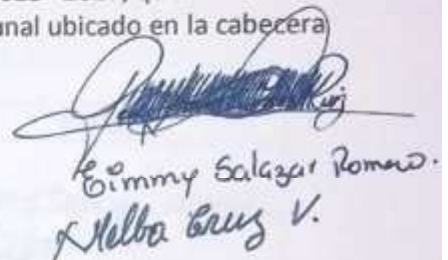 unal ubicado en la cabecera
Gimmy Salazar Romero.
Melba Cruz V.